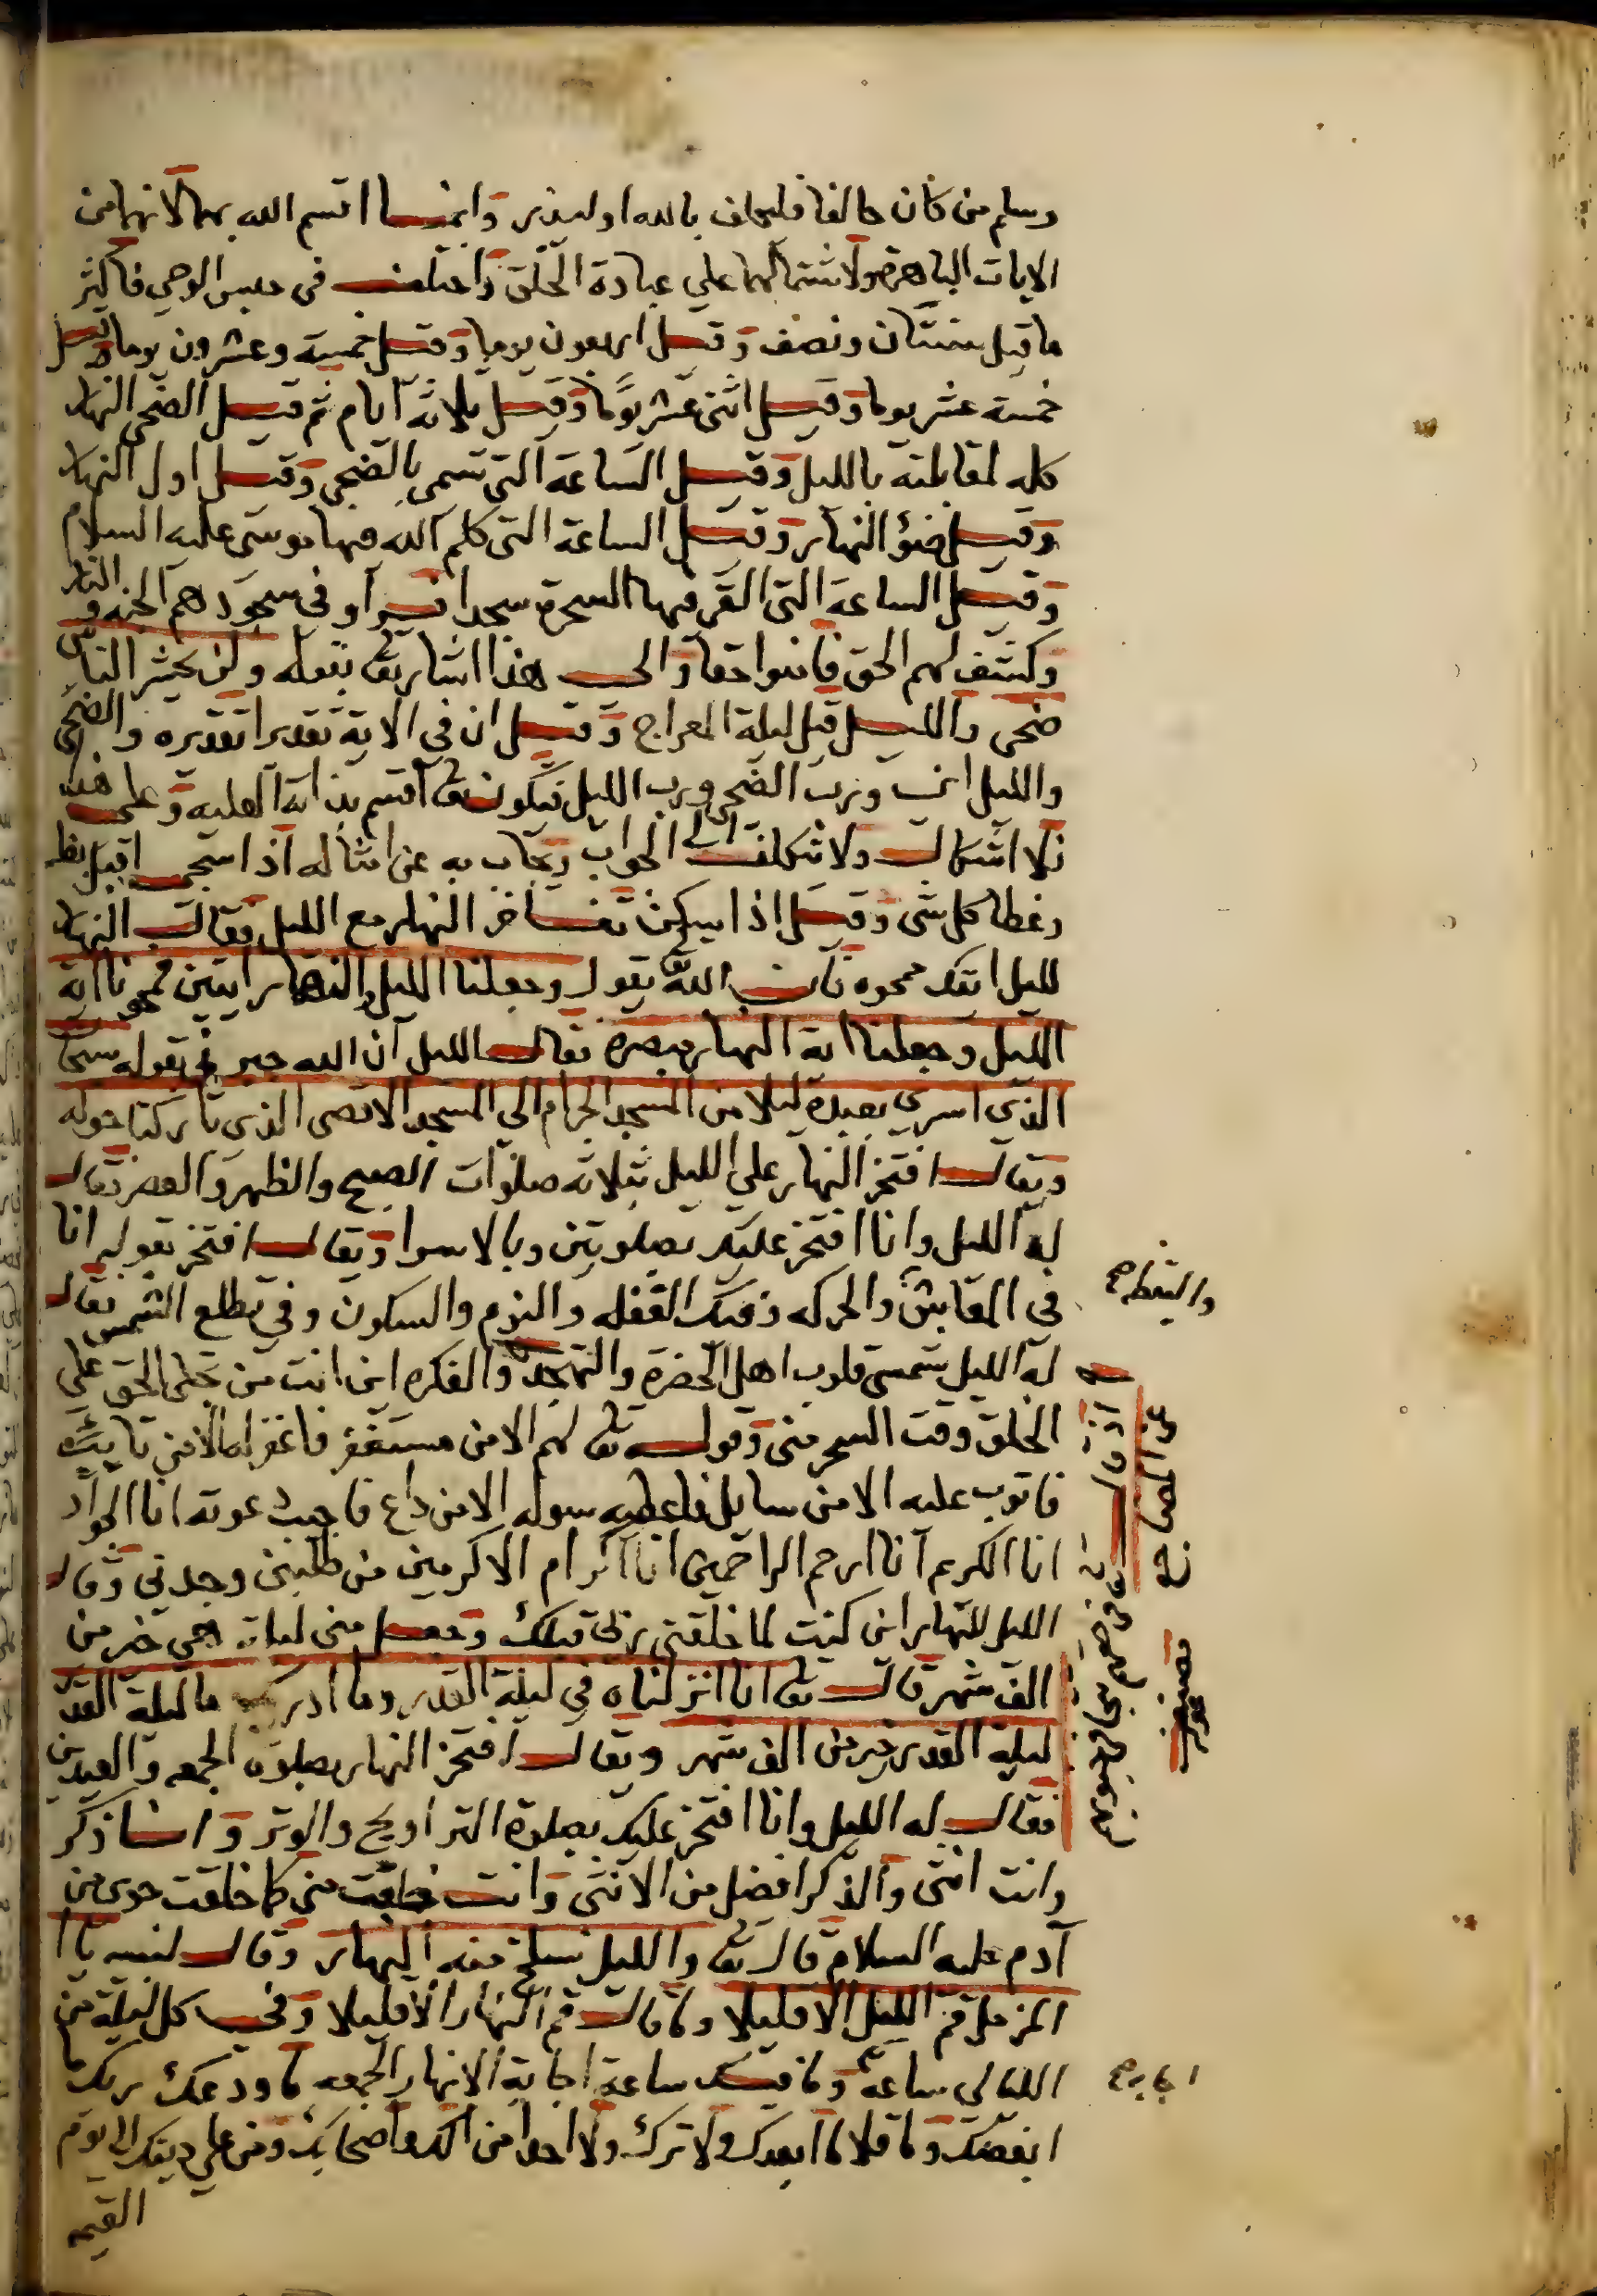 وسلم من كان حالفا فليحلف بالله او ليذر وانما اقسم الله بهما لانهما من
الايات الباهرة ولاشتمالهما علي عبادة الخلق واختلف في حبس الوحي فاكثر
ما قيل سنتان ونصف وقيل اربعون يوما وقيل خمسة وعشرون يوما وقيل
خمسة عشر يوما وقيل اثنى عشر يوما وقيل ثلاثة ايام ثم قيل الضحى النهار
كله لمقابلته بالليل وقيل الساعة التي تسمى بالضحى وقيل اول النهار
وقيل ضوؤ النهار وقيل الساعة التي كلم الله فيها موسى عليه السلام
وقيل الساعة التي القى فيها السحرة سجدا فسرأو في سجودهم الجنة والنار
وكشف لهم الحق فامنوا حقا والى هذا اشار تع بقوله وان يحشر الناس
ضحى والليل قيل ليلة المعراج وقيل ان في الاية تقديرا تقديره والضحى
والليل اي ورب الضحى ورب الليل فيكون تع اقسم بذاته العلية وعلى هذا
فلا اشكال ولا تكلف الى الجواب ويجاب به عن امثاله اذا سجى اقبل بظلـ
وغطا كل شي وقيل اذا سكن تفاخر النهار مع الليل فقال النهار
لليل ايتك ممحوه فان الله تع يقول وجعلنا الليل والنهار ايتين فمحونا اية
الليل وجعلنا اية النهار مبصرة فقال الليل ان الله خير في بقوله سبحا
الذي اسرى بعبده ليلا من المسجد الحرام الى المسجد الاقصى الذي باركنا حوله
ويقال افتخر النهار على الليل بثلاثه صلوات الصبح والظهر والعصر فقال
له الليل وانا افتخر عليك بصلوتين وبالاسرا ويقال افتخر بقوله انا
في المعايش والحركه وفيك الغفله والنوم والسكون وفي تطلع الشمس فقال
والتيقظ صح
له الليل شمسي قلوب اهل الحضرة والتهجد والفكره اين انت من تجلى الحق على
الخلق وقت السحر مني وقوله تع لهم الا من مستغفر فاغفر له الا من تايب
فاتوب عليه الا من سايل فاعطيه سوله الا من داع فاجيب دعوته انا الجواد
انا الكريم انا ارحم الراحمين انا اكرام الاكرمين من طلبني وجدني وقال
الليل للنهار اين كنت لما خلقني ربي قبلك وجعل مني ليلة هي خير من
الف شهر قال تع انا انزلناه في ليلة القدر وما ادريك ما ليلة القدر
ليلة القدر خير من الف شهر ويقال افتخر النهار بصلوة الجمعه والعيدين
فقال له الليل وانا افتخر عليك بصلوة التراويح والوتر وانا ذكر
وانت انثى والذكر افضل من الانثى وانت خلقت مني كما خلقت حوى من
آدم عليه السلام قال تع والليل نسلخ منه النهار وقال لنبيه يا ا
المزمل قم الليل الا قليلا وما قال قم النهار الا قليلا وفي كل ليلة من
الليالي ساعة وما فيك ساعة اجابة الا نهار الجمعه ما ودعك ربك
اجابه صح
ابغضك وما قلا ما ابعدك ولا تركك ولا احدا من الك واصحابك ومن على دينك الى يوم
القيمه